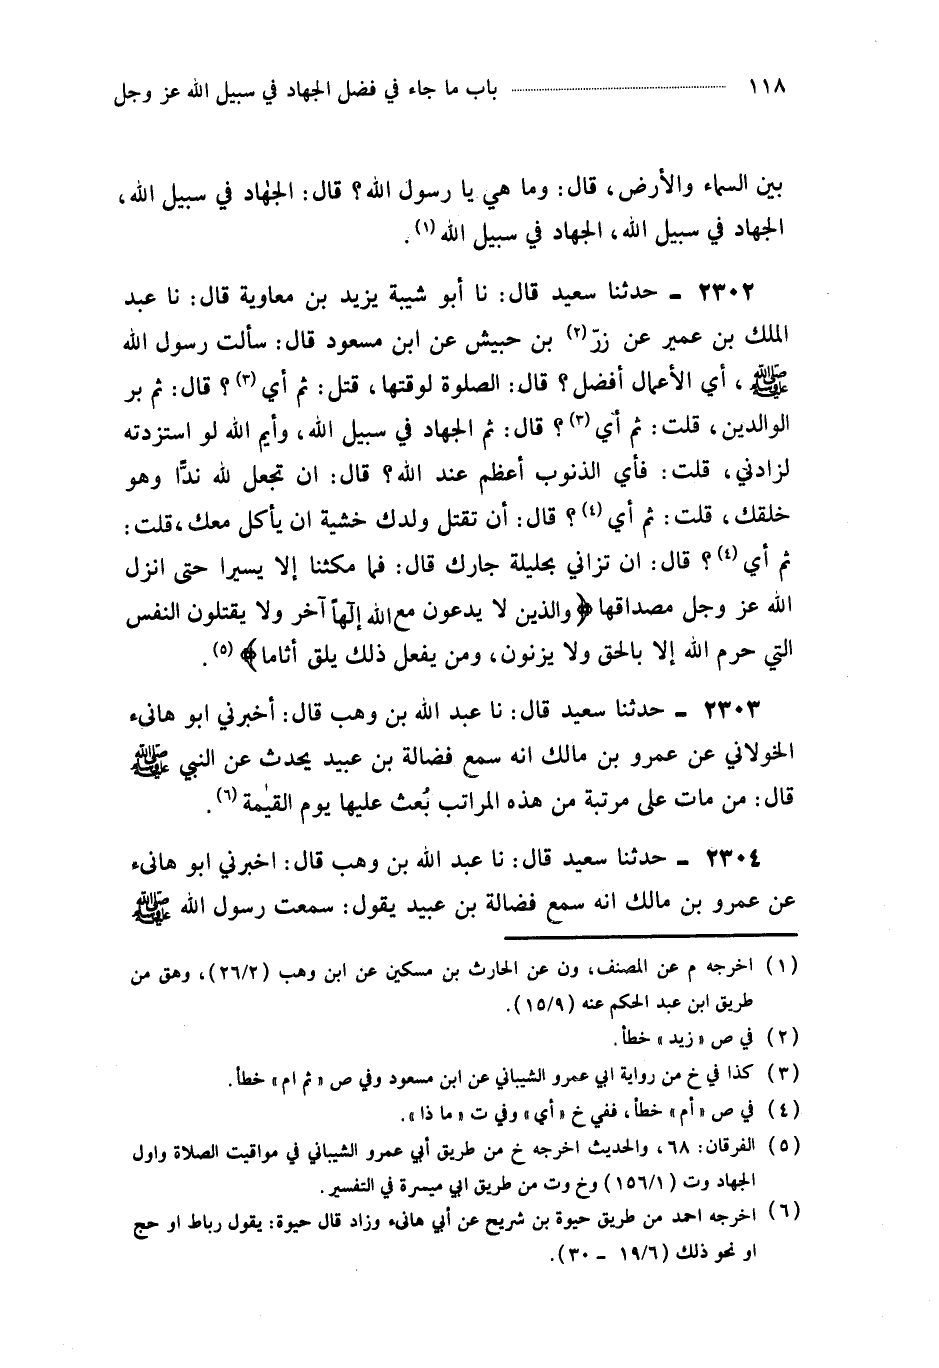 ١١٨ باب ما جاء في فضل الجهاد في سبيل الله عز وجل
بين السماء والأرض، قال: وما هي يا رسول الله؟ قال: الجهاد في سبيل الله،
الجهاد في سبيل الله، الجهاد في سبيل الله (١).
٢٣٠٢ ـ حدثنا سعيد قال: نا أبو شيبة يزيد بن معاوية قال: نا عبد
الملك بن عمير عن زرّ (٢) بن حبيش عن ابن مسعود قال: سألت رسول الله
ﷺ، أي الأعمال أفضل؟ قال: الصلوة لوقتها، قتل: ثم أي (٣)؟ قال: ثم بر
الوالدين، قلت: ثم أي (٣)؟ قال: ثم الجهاد في سبيل الله، وأيم الله لو استزدته
لزادني، قلت: فأي الذنوب أعظم عند الله؟ قال: ان تجعل لله ندًّا وهو
خلقك، قلت: ثم أي (٤)؟ قال: أن تقتل ولدك خشية ان يأكل معك، قلت:
ثم أي (٤)؟ قال: ان تزاني بحليلة جارك قال: فما مكثنا إلا يسيرا حتى انزل
الله عز وجل مصداقها ﴿والذين لا يدعون مع الله إلٰهاً آخر ولا يقتلون النفس
التي حرم الله إلا بالحق ولا يزنون، ومن يفعل ذلك يلق أثاما﴾ (٥).
٢٣٠٣ ـ حدثنا سعيد قال: نا عبد الله بن وهب قال: أخبرني ابو هانىء
الخولاني عن عمرو بن مالك انه سمع فضالة بن عبيد يحدث عن النبي ﷺ
قال: من مات على مرتبة من هذه المراتب بُعث عليها يوم القيٰمة (٦).
٢٣٠٤ ـ حدثنا سعيد قال: نا عبد الله بن وهب قال: اخبرني ابو هانىء
عن عمرو بن مالك انه سمع فضالة بن عبيد يقول: سمعت رسول الله ﷺ
(١) اخرجه م عن المصنف، ون عن الحارث بن مسكين عن ابن وهب (٢٦/٢)، وهق من
طريق ابن عبد الحكم عنه (١٥/٩).
(٢) في ص «زيد» خطأ.
(٣) كذا في خ من رواية ابي عمرو الشيباني عن ابن مسعود وفي ص «ثم ام» خطأ.
(٤) في ص «أم» خطأ، ففي خ «أي» وفي ت «ما ذا».
(٥) الفرقان: ٦٨، والحديث اخرجه خ من طريق أبي عمرو الشيباني في مواقيت الصلاة واول
الجهاد وت (١٥٦/١) وخ وت من طريق ابي ميسرة في التفسير.
(٦) اخرجه احمد من طريق حيوة بن شريح عن أبي هانىء وزاد قال حيوة: يقول رباط او حج
او نحو ذلك (١٩/٦ ـ ٣٠).